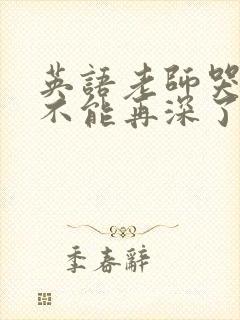 英語老師哭
不能再深了
季春辭